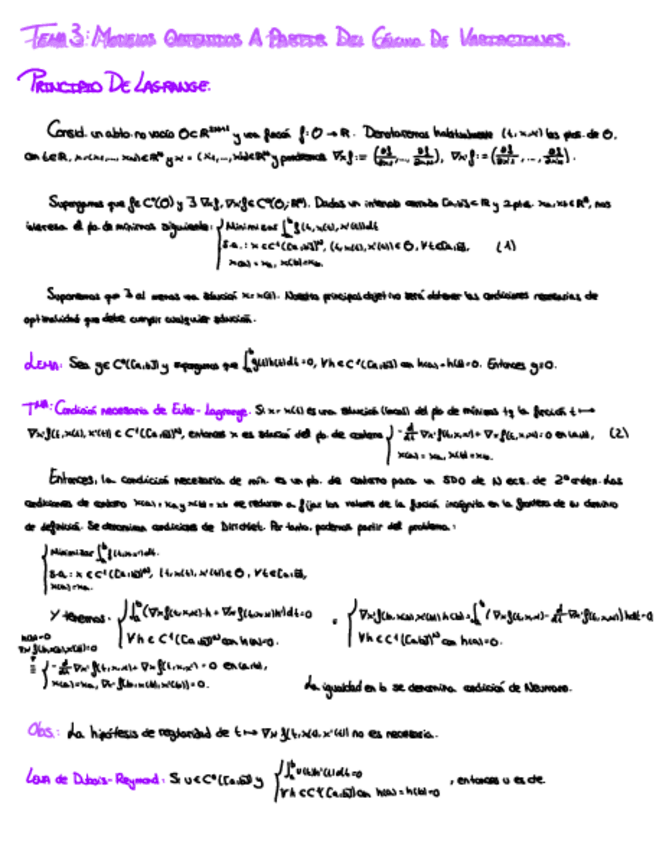 TEMA 3: MODELOS OBTENIDOS A PARTIR DEL CÁLCULO DE VARIACIONES.
PRINCIPIO DE LAGRANGE.
Consid. un abto. no vacío O⊂R^{2N+1} y una función f: O → R. Denotaremos habitualmente (t, x, x') los ptos. de O,
con t∈R, x=(x₁,..., x_N)∈R^N y x' = (x'₁,..., x'_N)∈R^N y pondremos ∇ₓf := (∂f/∂x₁, ..., ∂f/∂x_N), ∇ₓ'f := (∂f/∂x'₁, ..., ∂f/∂x'_N).
Supongamos que f∈C⁰(O) y ∃ ∇ₓf, ∇ₓ'f∈C⁰(O; R^N). Dados un intervalo cerrado [a,b]⊂R y 2 ptos. xₐ, x_b∈R^N, nos
interesa el pb. de mínimos siguiente: { Minimizar ∫ₐᵇ f(t, x(t), x'(t))dt
s.a.: x∈C¹([a,b])^N, (t, x(t), x'(t))∈O, ∀t∈[a,b], (1)
x(a) = xₐ, x(b) = x_b.
Suponemos que ∃ al menos una solución x = x(t). Nuestro principal objetivo será obtener las condiciones necesarias de
optimalidad que debe cumplir cualquier solución.
LEMA: Sea g∈C⁰([a,b]) y supongamos que ∫ₐᵇ g(t)h(t)dt = 0, ∀h∈C¹([a,b]) con h(a) = h(b) = 0. Entonces g≡0.
TMA: Condición necesaria de Euler-Lagrange. Si x = x(t) es una solución (local) del pb. de mínimos tq la función t ↦
∇ₓ'f(t, x(t), x'(t)) ∈ C¹([a,b])^N, entonces x es solución del pb. de contorno { -d/dt ∇ₓ'f(t,x,x') + ∇ₓf(t,x,x') = 0 en (a,b), (2)
x(a) = xₐ, x(b) = x_b.
Entonces, la condición necesaria de mín. es un pb. de contorno para un SDO de N ecs. de 2º orden. Las
condiciones de contorno x(a) = xₐ y x(b) = x_b se reducen a fijar los valores de la función incógnita en la frontera de su dominio
de definición. Se denominan condiciones de Dirichlet. Por tanto, podemos partir del problema:
{ Minimizar ∫ₐᵇ f(t,x,x')dt.
s.a.: x∈C¹([a,b])^N, (t, x(t), x'(t))∈O, ∀t∈[a,b],
x(a) = xₐ.
Y tenemos. { ∫ₐᵇ (∇ₓf(t,x,x')·h + ∇ₓ'f(t,x,x')h')dt = 0
∀h∈C¹([a,b])^N con h(a) = 0.
{ ∇ₓ'f(b, x(b), x'(b))h(b) + ∫ₐᵇ (∇ₓf(t,x,x') - d/dt ∇ₓ'f(t,x,x'))h dt = 0
∀h∈C¹([a,b])^N con h(a) = 0.
h(a) = 0
∇ₓ'f(b, x(b), x'(b)) = 0
≡ { -d/dt ∇ₓ'f(t,x,x') + ∇ₓf(t,x,x') = 0 en (a,b),
x(a) = xₐ, ∇ₓ'f(b, x(b), x'(b)) = 0.
La igualdad en b se denomina condición de Neumann.
Obs.: La hipótesis de regularidad de t ↦ ∇ₓ'f(t, x(t), x'(t)) no es necesaria.
Lema de Dubois-Reymond: Si u∈C⁰([a,b]) y { ∫ₐᵇ u(t)h'(t)dt = 0
∀h∈C¹([a,b]) con h(a) = h(b) = 0
, entonces u es cte.